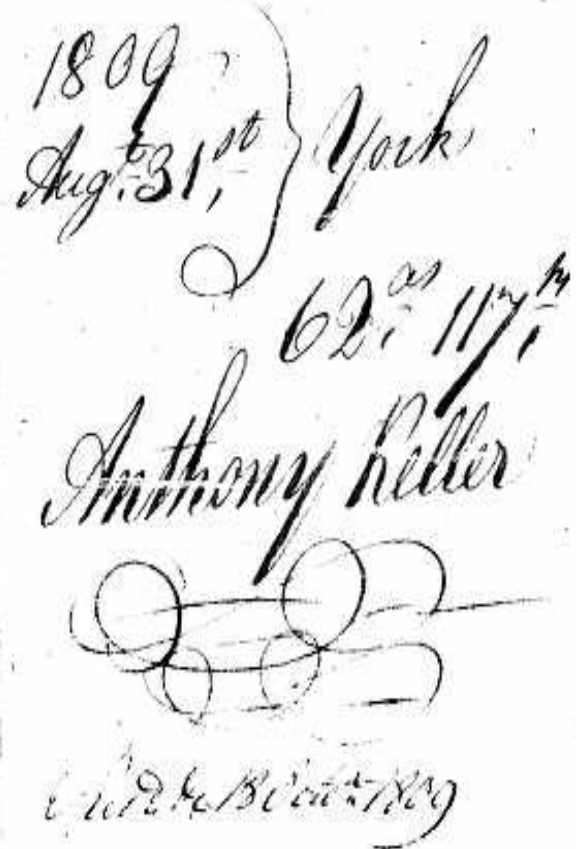 1809
Augt. 31st } York
62as 117ps
Anthony Keller
1809